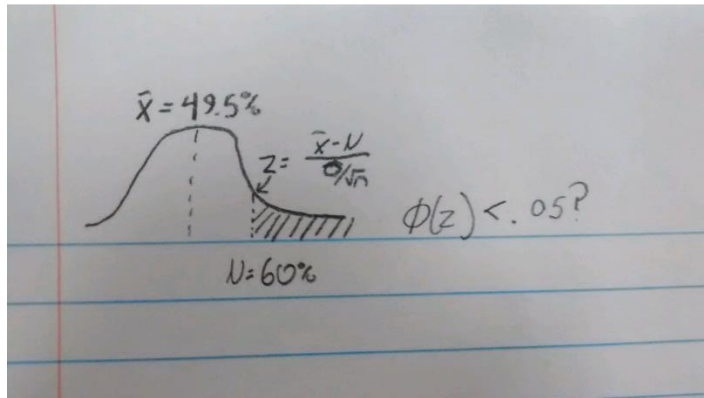 x̄ = 49.5%
z = (x̄ - N)/(σ/√n)
φ(z) < .05?
N = 60%